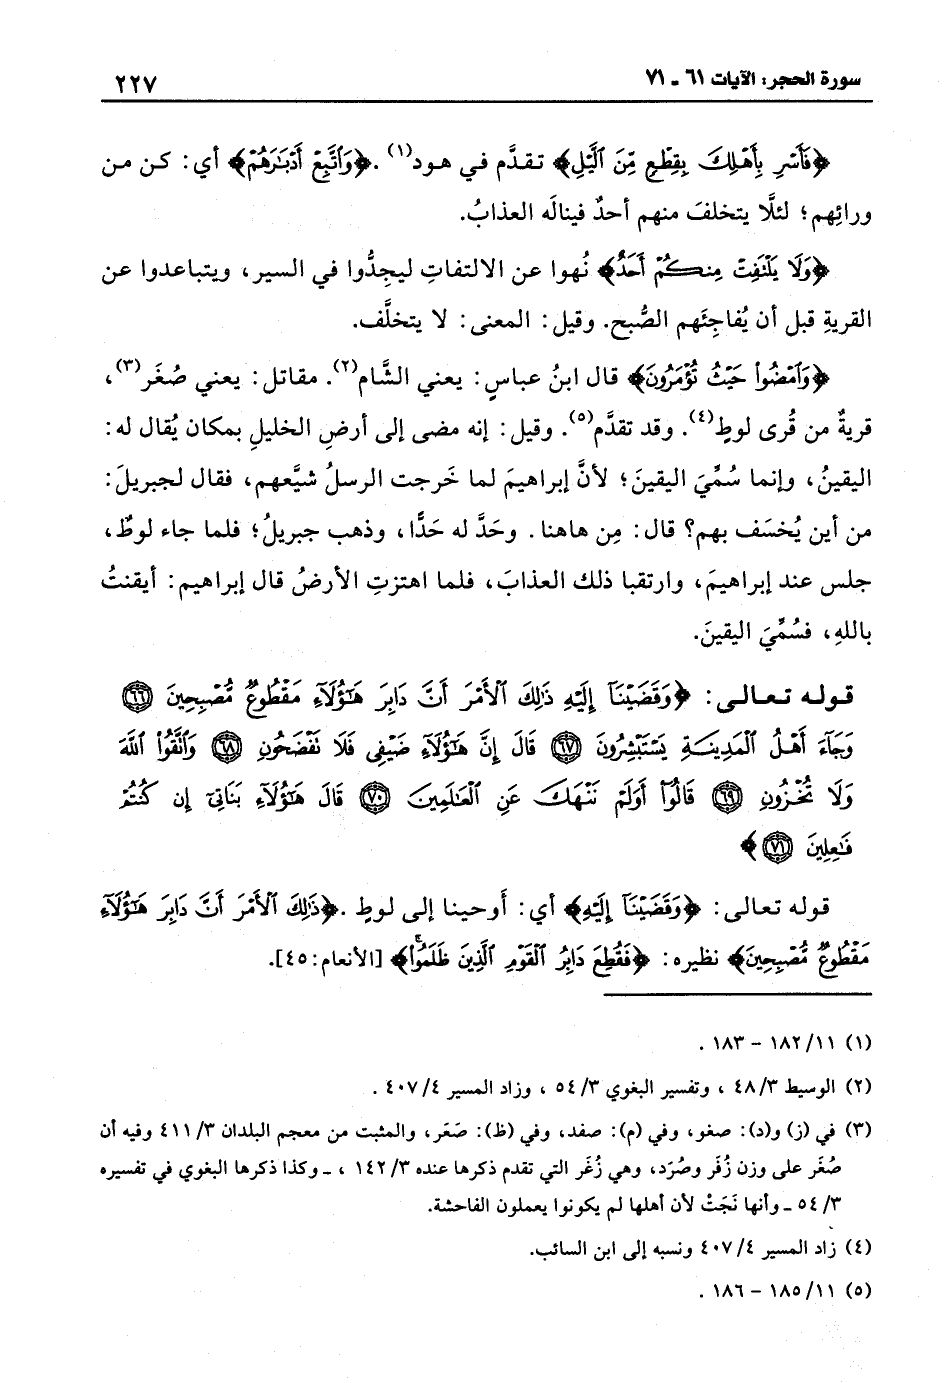 سورة الحجر: الآيات ٦١ - ٧١ ٢٢٧
﴿فَأَسْرِ بِأَهْلِكَ بِقِطْعٍ مِّنَ ٱلَّيْلِ﴾ تقدَّم في هود(١). ﴿وَٱتَّبِعْ أَدْبَٰرَهُمْ﴾ أي: كن من
ورائِهم؛ لئلَّا يتخلفَ منهم أحدٌ فينالَه العذابُ.
﴿وَلَا يَلْتَفِتْ مِنكُمْ أَحَدٌ﴾ نُهوا عن الالتفاتِ ليجِدُّوا في السير، ويتباعدوا عن
القريةِ قبل أن يُفاجِئَهم الصُّبح. وقيل: المعنى: لا يتخلَّف.
﴿وَٱمْضُوا۟ حَيْثُ تُؤْمَرُونَ﴾ قال ابنُ عباسٍ: يعني الشَّام(٢). مقاتل: يعني صُغَر(٣)،
قريةٌ من قُرى لوطٍ(٤). وقد تقدَّم(٥). وقيل: إنه مضى إلى أرضِ الخليلِ بمكان يُقال له:
اليقينُ، وإنما سُمِّيَ اليقينَ؛ لأنَّ إبراهيمَ لما خَرجت الرسلُ شيَّعهم، فقال لجبريلَ:
من أين يُخسَف بهم؟ قال: مِن هاهنا. وحَدَّ له حَدًّا، وذهب جبريلُ؛ فلما جاء لوطٌ،
جلس عند إبراهيمَ، وارتقبا ذلك العذابَ، فلما اهتزتِ الأرضُ قال إبراهيم: أيقنتُ
باللهِ، فسُمِّيَ اليقينَ.
قوله تعالى: ﴿وَقَضَيْنَآ إِلَيْهِ ذَٰلِكَ ٱلْأَمْرَ أَنَّ دَابِرَ هَٰٓؤُلَآءِ مَقْطُوعٌ مُّصْبِحِينَ ٦٦
وَجَآءَ أَهْلُ ٱلْمَدِينَةِ يَسْتَبْشِرُونَ ٦٧ قَالَ إِنَّ هَٰٓؤُلَآءِ ضَيْفِى فَلَا تَفْضَحُونِ ٦٨ وَٱتَّقُوا۟ ٱللَّهَ
وَلَا تُخْزُونِ ٦٩ قَالُوٓا۟ أَوَلَمْ نَنْهَكَ عَنِ ٱلْعَٰلَمِينَ ٧٠ قَالَ هَٰٓؤُلَآءِ بَنَاتِىٓ إِن كُنتُمْ
فَٰعِلِينَ ٧١﴾
قوله تعالى: ﴿وَقَضَيْنَآ إِلَيْهِ﴾ أي: أوحينا إلى لوطٍ. ﴿ذَٰلِكَ ٱلْأَمْرَ أَنَّ دَابِرَ هَٰٓؤُلَآءِ
مَقْطُوعٌ مُّصْبِحِينَ﴾ نظيره: ﴿فَقُطِعَ دَابِرُ ٱلْقَوْمِ ٱلَّذِينَ ظَلَمُوا۟ۚ﴾ [الأنعام:٤٥].
(١) ١١/ ١٨٢ - ١٨٣ .
(٢) الوسيط ٣/ ٤٨ ، وتفسير البغوي ٣/ ٥٤ ، وزاد المسير ٤/ ٤٠٧ .
(٣) في (ز) و(د): صغو، وفي (م): صفد، وفي (ظ): صَعَر، والمثبت من معجم البلدان ٣/ ٤١١ وفيه أن
صُغَر على وزن زُفَر وصُرَد، وهي زُغَر التي تقدم ذكرها عنده ٣/ ١٤٢ ، ـ وكذا ذكرها البغوي في تفسيره
٣/ ٥٤ ـ وأنها نَجَتْ لأن أهلها لم يكونوا يعملون الفاحشة.
(٤) زاد المسير ٤/ ٤٠٧ ونسبه إلى ابن السائب.
(٥) ١١/ ١٨٥ - ١٨٦ .